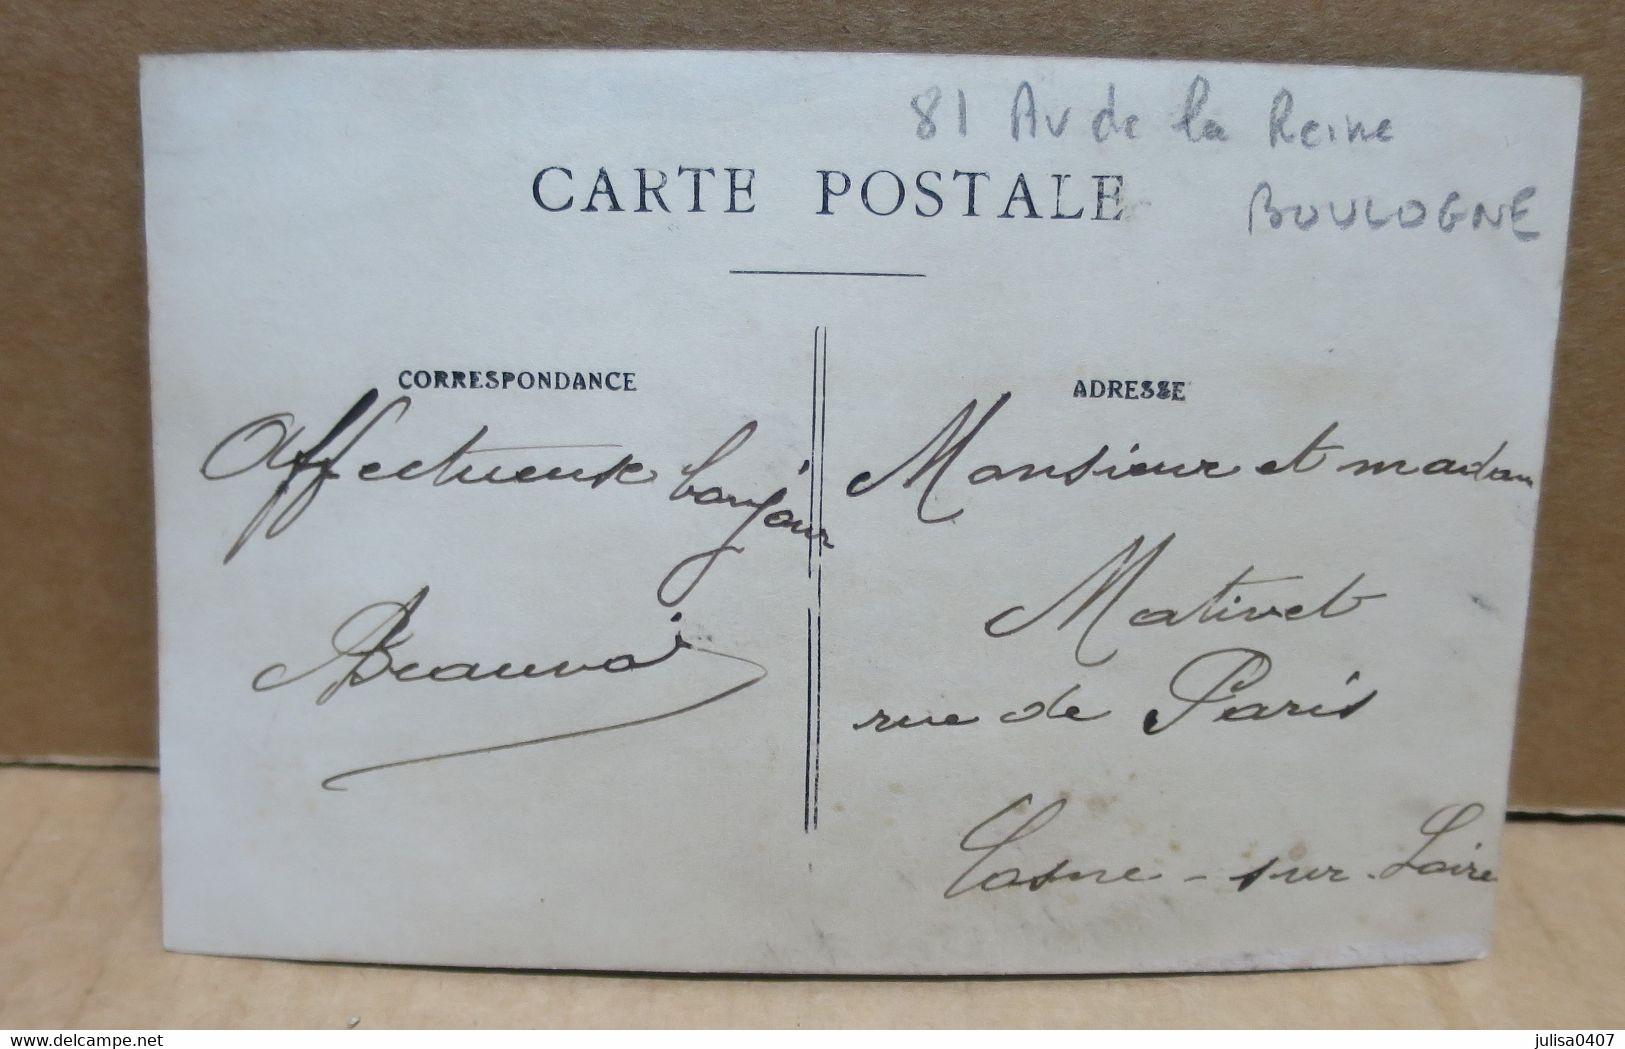 81 Av de la Reine
BOULOGNE
CARTE POSTALE
CORRESPONDANCE
Affectueux bonjour
ABeauvai
ADRESSE
Monsieur et madam
Mativet
rue de Paris
Cosne - sur - Loire
delcampe.net
julisa0407